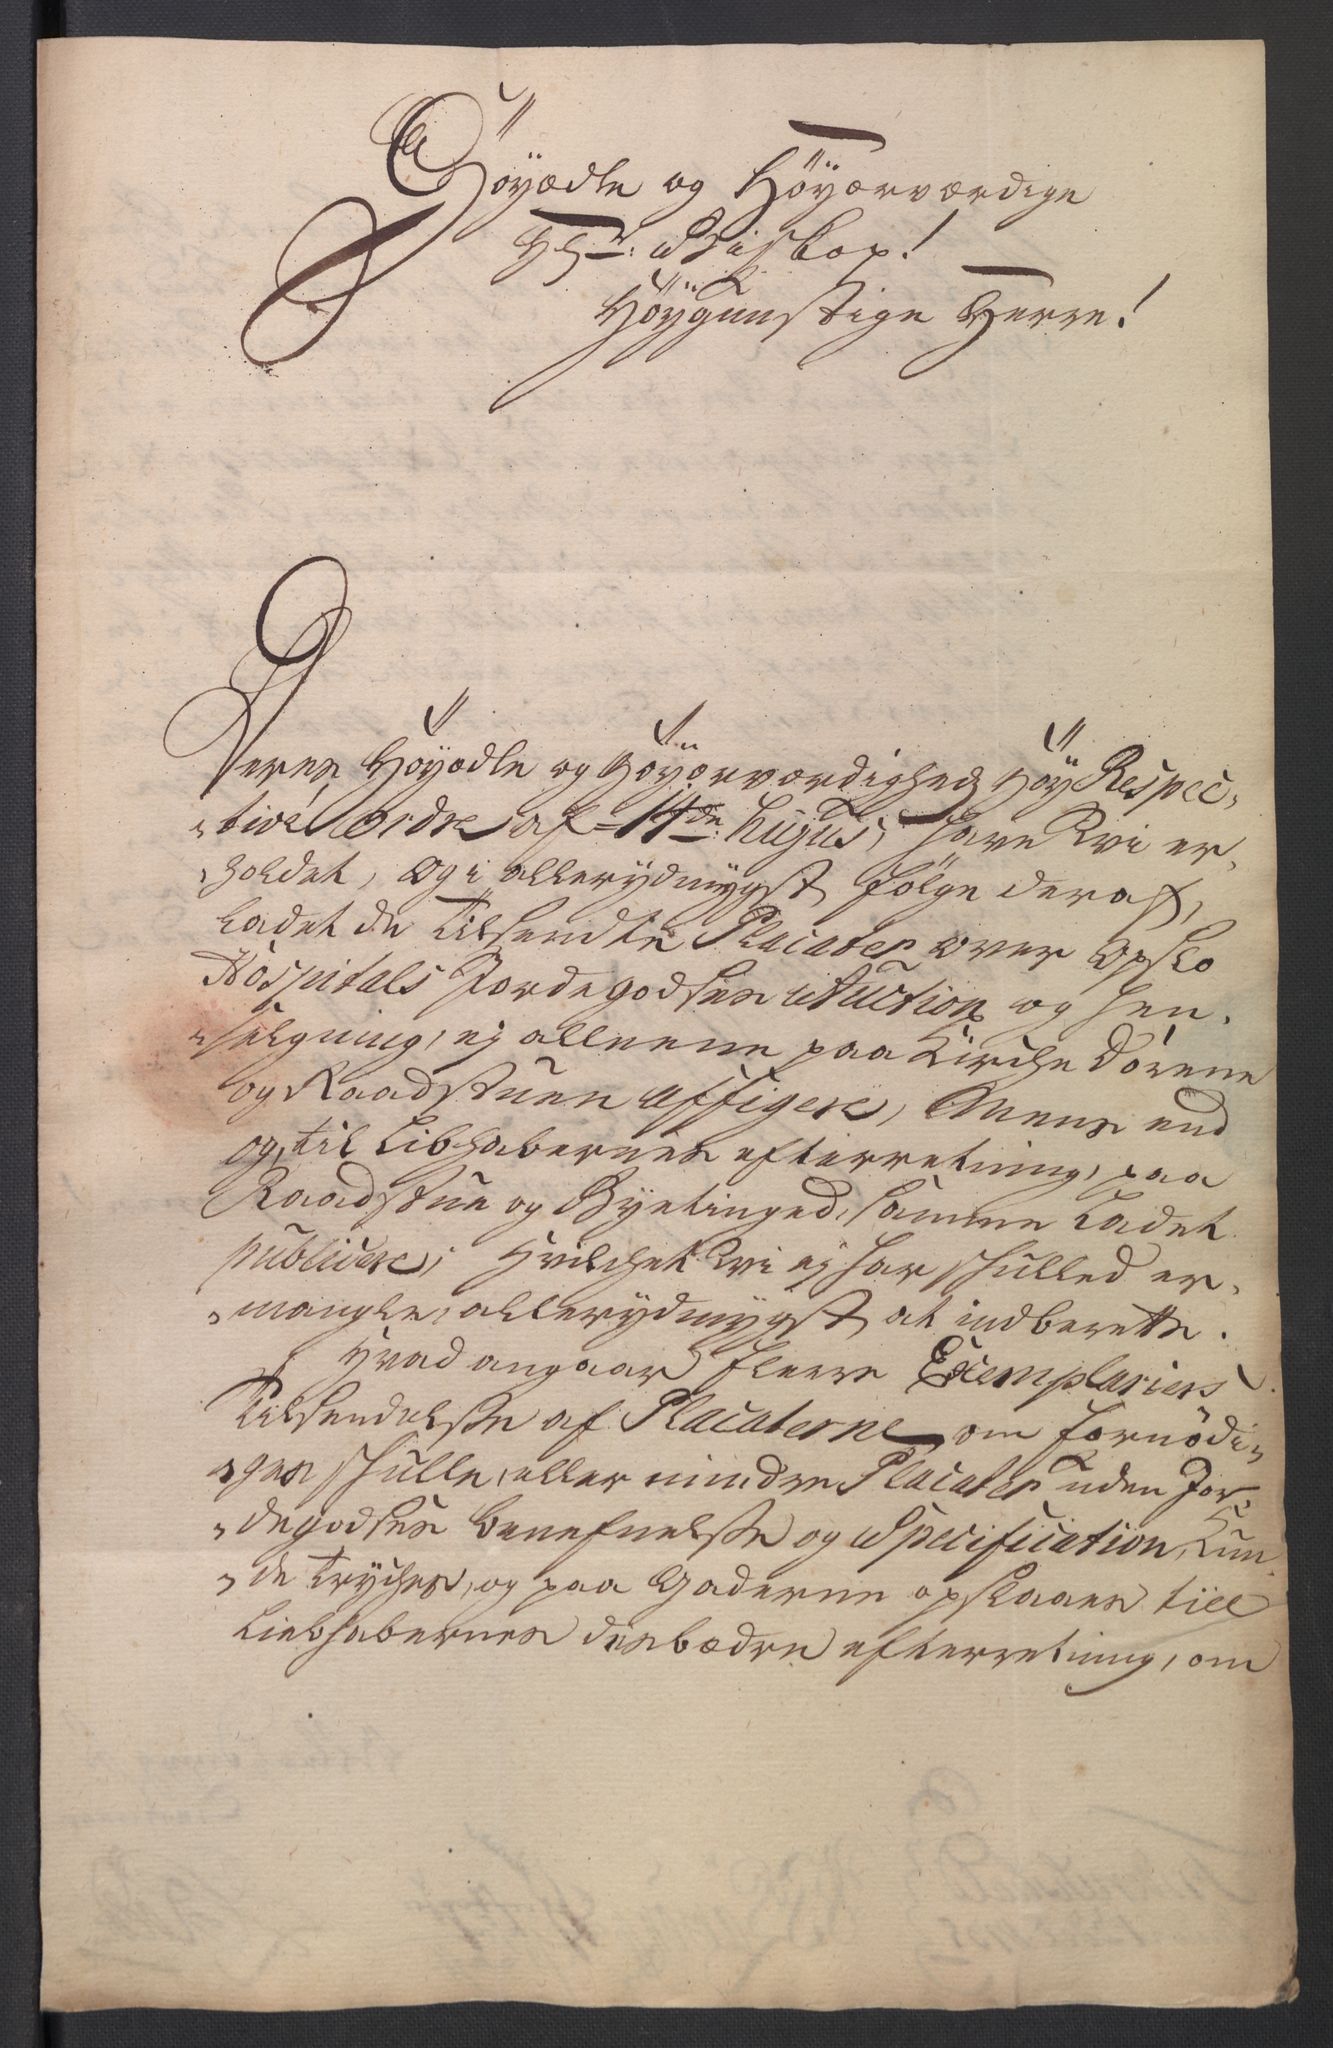 Höyædle og Höyærværdige
Hr: Biskop!
Höygunstige Herre!
Deres Höyædle og Höyærværdighed Höy Respec-
-tive Ordre af 14de hujus, have Vi er-
-holdet, og i allerydmygst følge deraf,
ladet de tilsendte Placater over Opslo
Hospitals Jordegodses Auction og hen-
-sælgning, ej alleene paa Kirche dörene
og Raadstuen affigere, Mens end
og, til Libhabernes efterretning, paa
Raadstue og Byetinged, samme ladet
publicere; hvilchet Vi ej har skulled er-
-mangle, allerydmygst at indberette.
Hvad angaar fleere Exemplariers
tilsendelse af Placaterne om fornödi-
-ges skulle, eller mindre Placater uden Jor-
-degodses benefnelse og Specification, kun-
-de tryches, og paa Gaderne opslaaes till
Liebhabernes desbædre efterretning, om